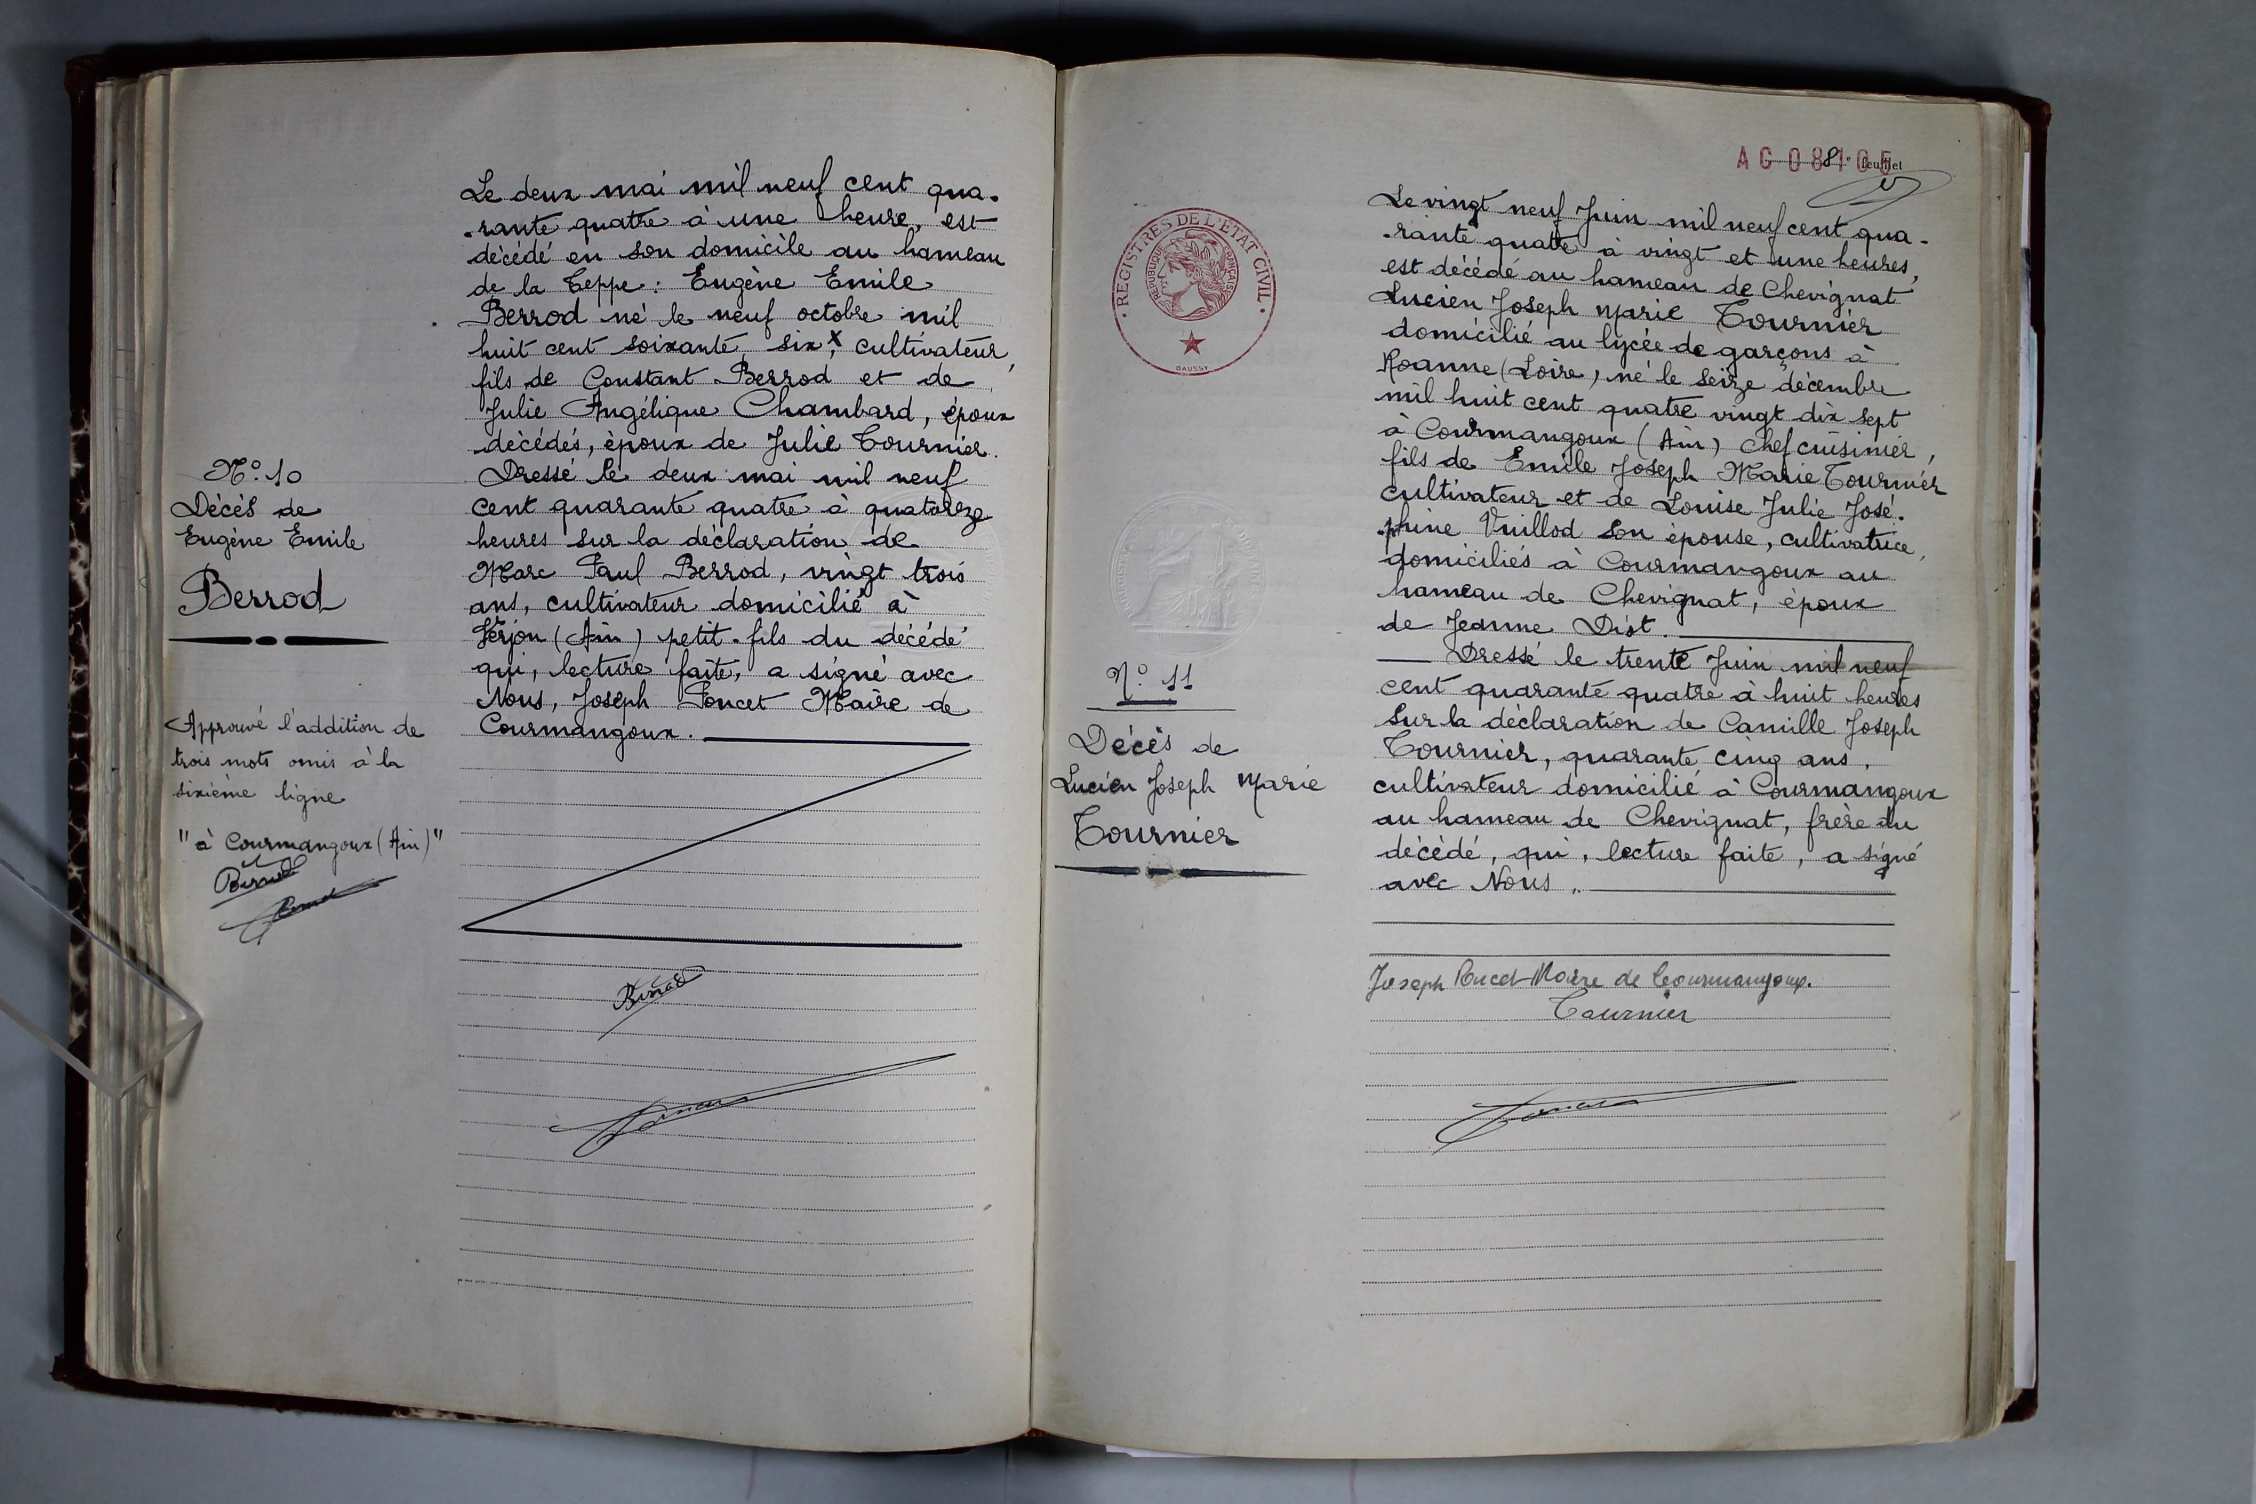 Le deux mai mil neuf cent qua-
-rante quatre à une heure, est
décédé en son domicile au hameau
de la Teppe : Eugène Emile
Berrod né le neuf octobre mil
huit cent soixante six, x cultivateur,
fils de Constant Berrod et de
Julie Angélique Chambard, époux
décédés, époux de Julie Tournier.
Dressé le deux mai mil neuf
cent quarante quatre à quatorze
heures sur la déclaration de
Marc Paul Berrod, vingt trois
ans, cultivateur domicilié à
Verjon (Ain) petit-fils du décédé
qui, lecture faite, a signé avec
Nous, Joseph Poncet Maire de
Courmangoux.
N° 10
Décès de
Eugène Emile
Berrod
Approuvé l'addition de
trois mots omis à la
sixième ligne
"à Courmangoux (Ain)"
Berrod
Poncet
Berrod
Poncet
AG 08105
8e feuillet
REGISTRES DE L'ETAT CIVIL
REPUBLIQUE FRANÇAISE
DAUSSY
Le vingt neuf Juin mil neuf cent qua-
-rante quatre à vingt et une heures,
est décédé au hameau de Chevignat
Lucien Joseph Marie Tournier
domicilié au lycée de garçons à
Roanne (Loire), né le seize décembre
mil huit cent quatre vingt dix sept
à Courmangoux (Ain) chef cuisinier,
fils de Emile Joseph Marie Tournier
cultivateur et de Louise Julie José-
-phine Vuillod son épouse, cultivatrice,
domiciliés à Courmangoux au
hameau de Chevignat, époux
de Jeanne Diot.
Dressé le trente Juin mil neuf
cent quarante quatre à huit heures
sur la déclaration de Camille Joseph
Tournier, quarante cinq ans,
cultivateur domicilié à Courmangoux
au hameau de Chevignat, frère du
décédé, qui, lecture faite, a signé
avec Nous,.
N° 11
Décès de
Lucien Joseph Marie
Tournier
Joseph Poncet Maire de Courmangoux.
Tournier
Poncet